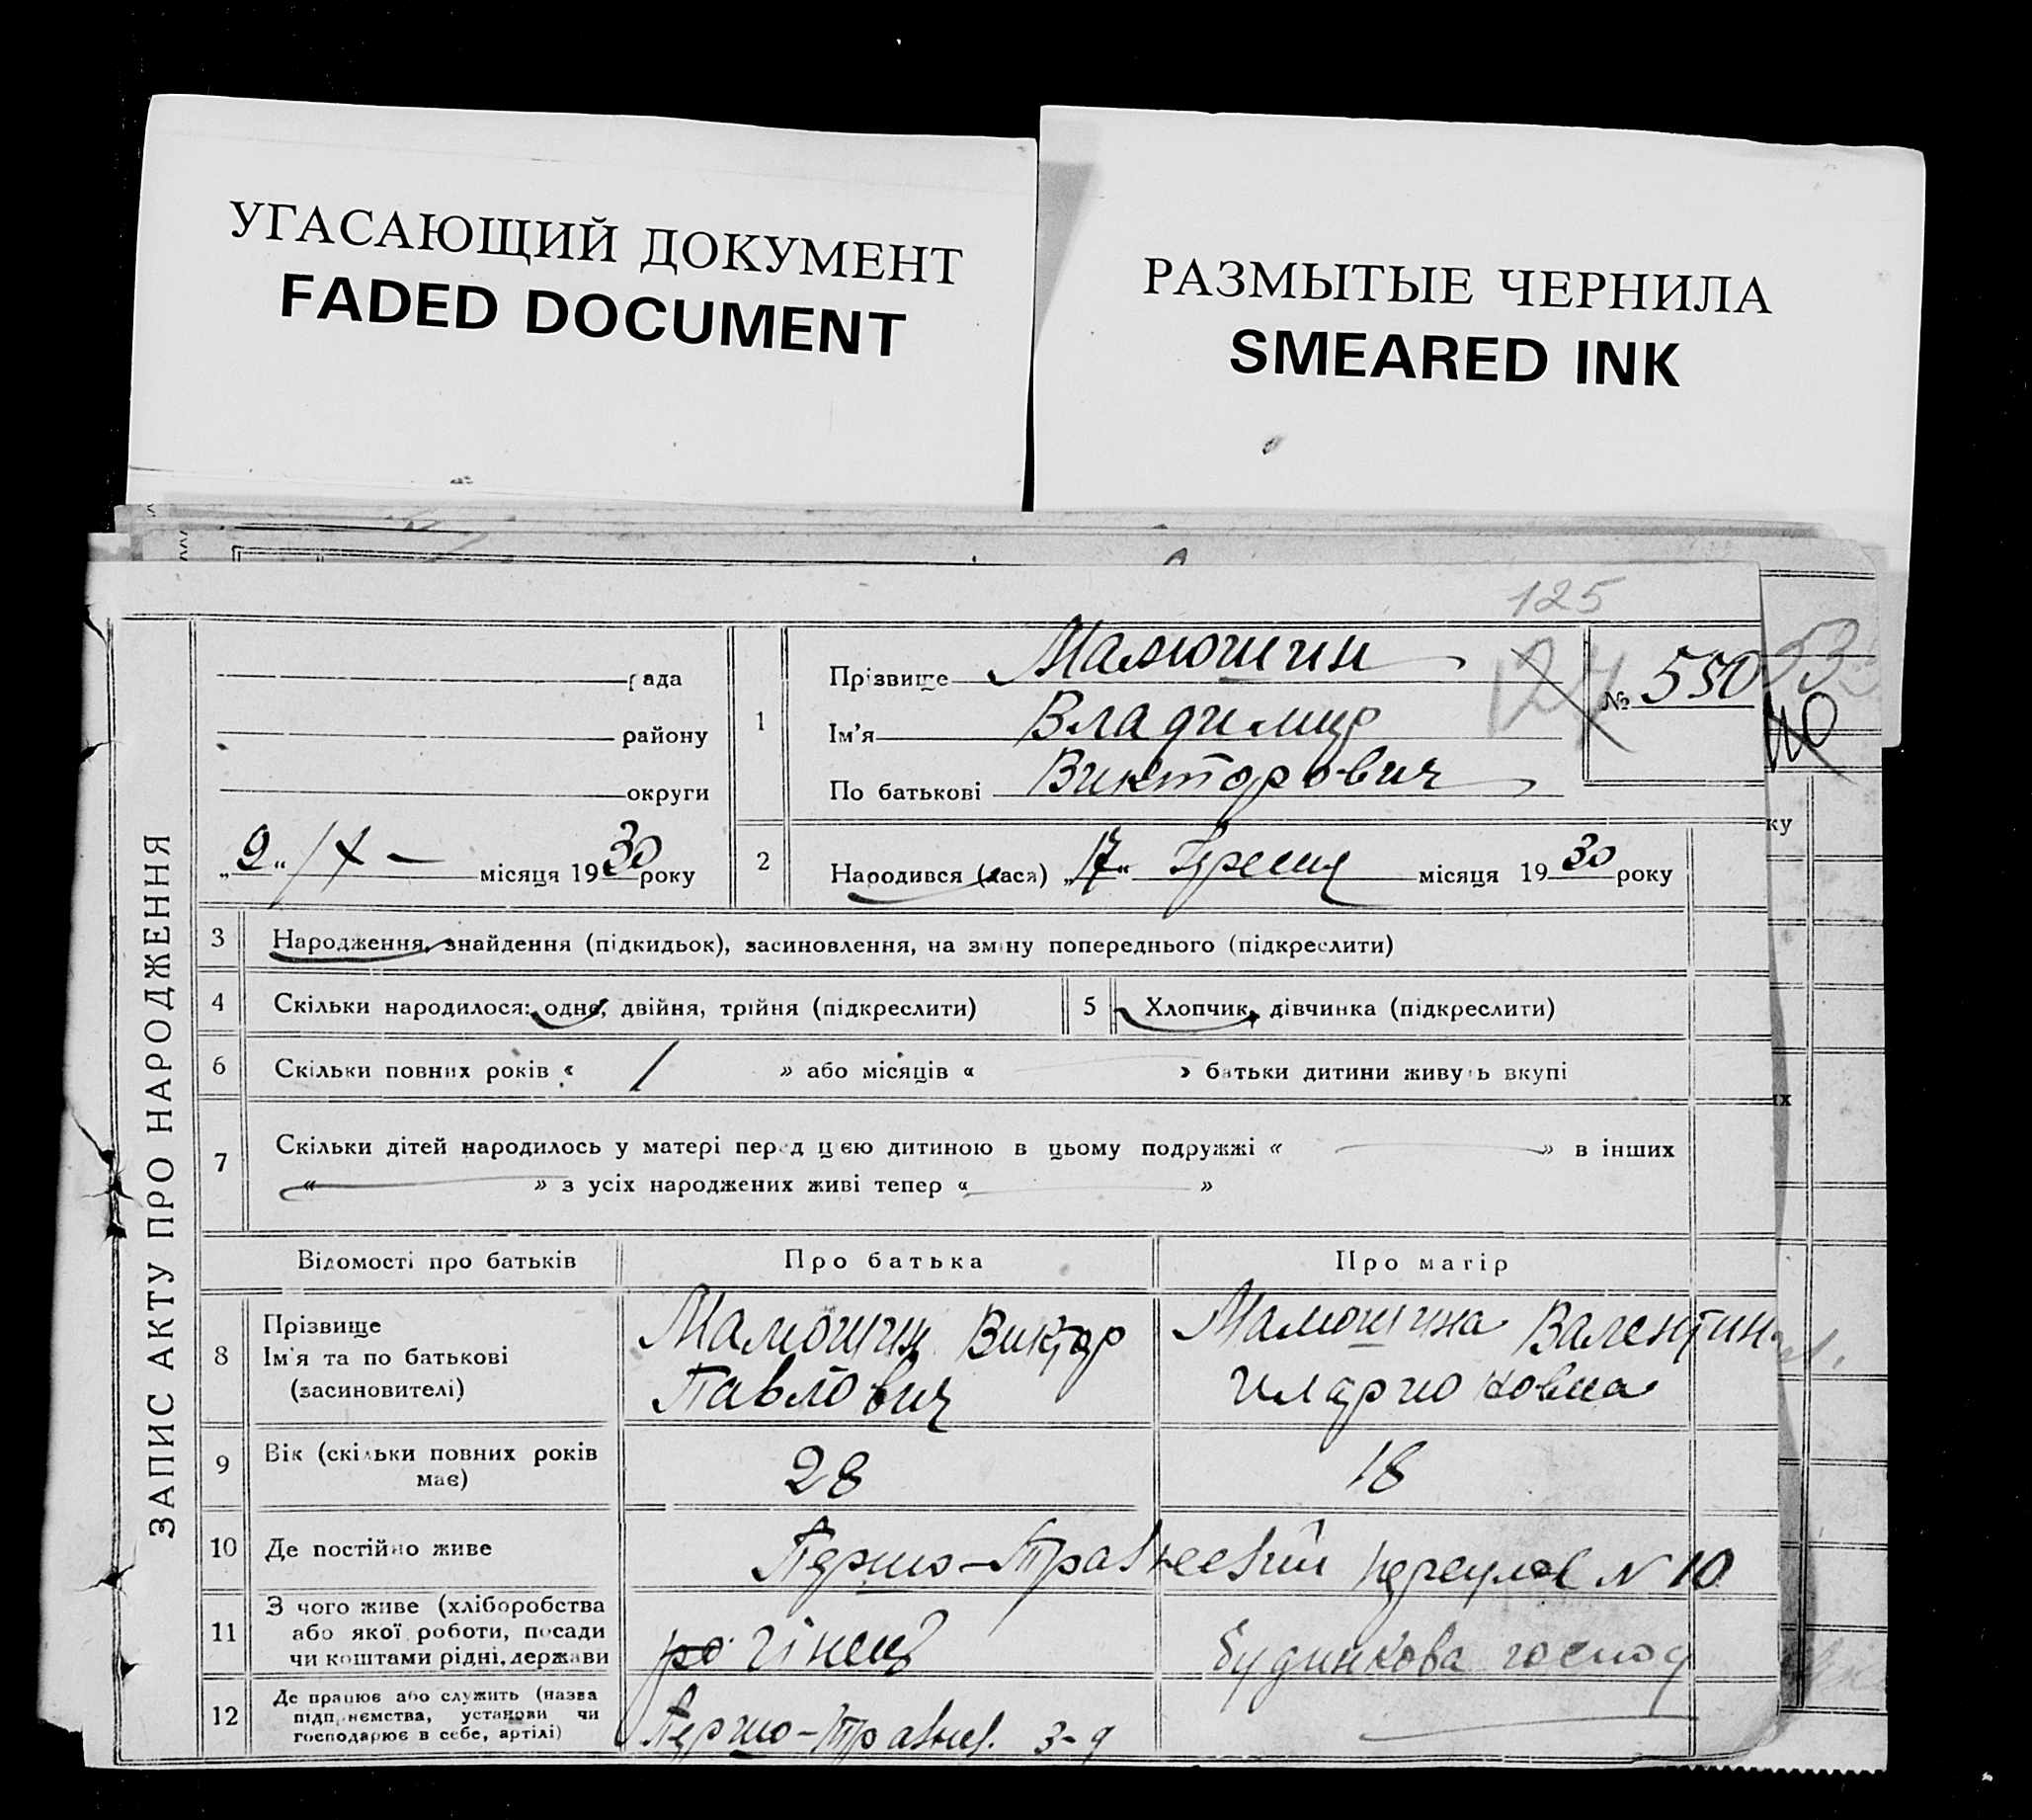 УГАСАЮЩИЙ ДОКУМЕНТ
FADED DOCUMENT
РАЗМЫТЫЕ ЧЕРНИЛА
SMEARED INK
125
124
53
ЗАПИС АКТУ ПРО НАРОДЖЕННЯ
рада
району
округи
„9“ /X — місяця 1930 року
1
Прізвище Малюшин
№ 550
Ім'я Владимир
По батькові Викторович
2
Народився (лася) „17“ місяця 1930 року
3 Народження, знайдення (підкидьок), засиновлення, на зміну попереднього (підкреслити)
4 Скільки народилося: одне, двійня, трійня (підкреслити)
5 Хлопчик, дівчинка (підкреслити)
6 Скільки повних років « / » або місяців « » батьки дитини живуть вкупі
7 Скільки дітей народилось у матері перед цією дитиною в цьому подружжі « — » в інших
« — » з усіх народжених живі тепер « — »
Відомості про батьків
Про батька
Про матір
8
Прізвище
Ім'я та по батькові
(засиновителі)
Малюшин Виктор
Павлович
Малюшина Валентина
Иларионовна
9
Вік (скільки повних років
має)
28
18
10 Де постійно живе
Першо-Травневий переулок N 10
11
З чого живе (хліборобства
або якої роботи, посади
чи коштами рідні, держави
будинкова господ
12
Де працює або служить (назва
підприємства, установи чи
господарює в себе, артілі)
Першо-Травнев. з-д
ку
их